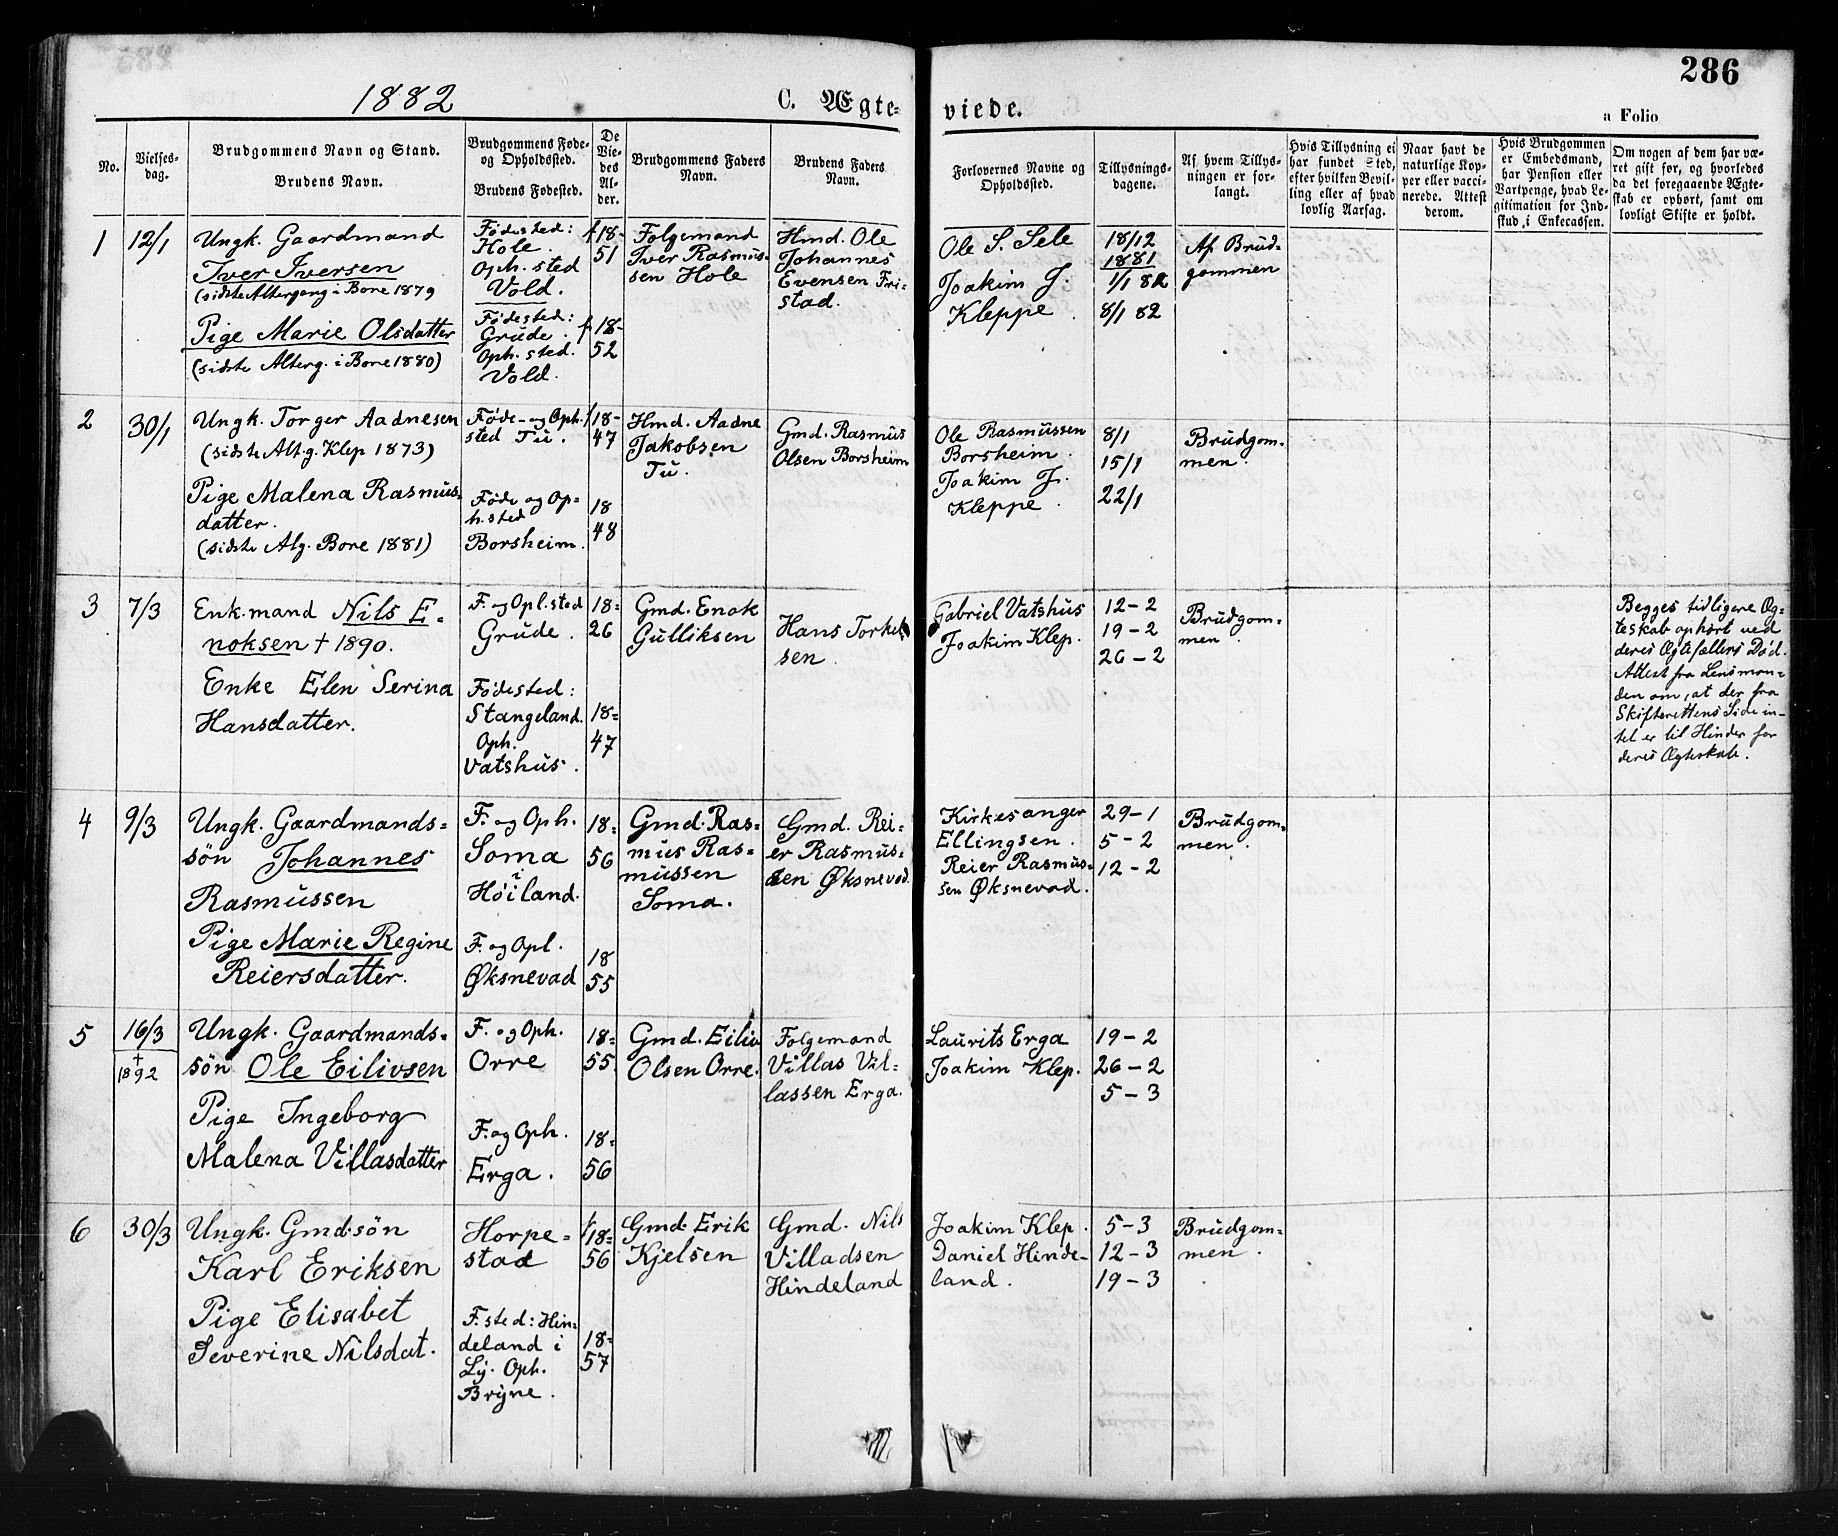 286
1882
C. Ægte-
viede.
a Folio
No.
Vielses-
dag.
Brudgommens Navn og Stand.
Brudens Navn.
Brudgommens Føde-
og Opholdssted.
Brudens Fødested.
De
Vie-
des
Al-
der.
Brudgommens Faders
Navn.
Brudens Faders
Navn.
Forlovernes Navne og
Opholdssted.
Tillysnings-
dagene.
Af hvem Tillys-
ningen er for-
langt.
Hvis Tillysning ei
har fundet Sted,
efter hvilken Bevil-
ling eller af hvad
lovlig Aarsag.
Naar havt de
naturlige Kop-
per eller vacci-
nerede. Attest
derom.
Hvis Brudgommen
er Embedsmand,
har Pension eller
Vartpenge, hvad Le-
gitimation for Ind-
skud i Enkecassen.
Om nogen af dem har væ-
ret gift før, og hvorledes
da det foregaaende Ægte-
skab er ophørt, samt om
lovligt Skifte er holdt.
1
12/1
Ungk. Gaardmand
Iver Iversen
(sidste Altergang i Bore 1879
Pige Marie Olsdatter
(sidste Alterg. i Bore 1880)
Fødested:
Hole.
Oph. sted
Vold.
Fødested:
Grude.
Oph. sted.
Vold.
18-
51
18-
52
Følgemand
Iver Rasmus-
sen Hole
Hmd. Ole
Johannes
Evensen Fri-
stad.
Ole S. Sele
Joakim J.
Kleppe.
18/12
1881
1/1 82
8/1 82
Af Brud-
gommen
2
30/1
Ungk. Torger Aadnesen
(sidste Alt.g. Klep 1873)
Pige Malena Rasmus-
datter.
(sidste Alg. Bore 1881)
Føde- og Oph.
sted Tu.
Føde og Op-
h. sted
Borsheim.
18-
47
18
48
Hmd. Aadne
Jakobsen
Tu.
Gmd. Rasmus
Olsen Borsheim
Ole Rasmussen
Borsheim.
Joakim J.
Kleppe.
8/1
15/1
22/1
Brudgom-
men.
3
7/3
Enk.mand Nils E-
noksen † 1890.
Enke Elen Serina
Hansdatter.
F. og Opl.sted
Grude.
Fødested:
Stangeland.
Oph.
Vatshus.
18=
26
18=
47
Gmd. Enok
Gulliksen
Hans Torkel
sen.
Gabriel Vatshus
Joakim Klep.
12-2
19-2
26-2
Brudgom-
men
Begges tidligere Æg-
teskab ophørt ved
deres Ægtefællers Død.
Attest fra Lensman-
den om, at der fra
Skifterettens Side in-
tet er til Hinder for
deres Ægteskab.
4
9/3
Ungk. Gaardmands=
søn Johannes
Rasmussen
Pige Marie Regine
Reiersdatter.
F. og Oph.
Soma
i
Høiland.
F. og Opl.
Øksnevad
18=
56
18
55
Gmd. Ras=
mus Ras=
mussen
Soma.
Gmd. Rei-
er Rasmus=
sen Øksnevad.
Kirkesanger
Ellingsen.
Reier Rasmus=
sen Øksnevad.
29-1
5-2
12-2
Brudgom-
men.
5
16/3
†
1892
Ungk. Gaardmands=
søn Ole Eilivsen
Pige Ingeborg
Malena Villasdatter
F. og Oph.
Orre
F. og Oph.
Erga.
18=
55
18=
56
Gmd. Eiliv
Olsen Orre.
Følgemand
Villas Vil-
lassen Erga.
Laurits Erga
Joakim Klep.
19-2
26-2
5-3
6
30/3
Ungk. Gmd.søn
Karl Eriksen
Pige Elisabet
Severine Nilsdat.
Horpe=
stad
F. sted: Hin-
deland i
Ly. Oph.
Bryne.
18=
56
18=
57
Gmd. Erik
Kjelsen
Gmd. Nils
Villadsen
Hindeland
Joakim Klep.
Daniel Hinde-
land.
5-3
12-3
19-3
Brudgom=
men.